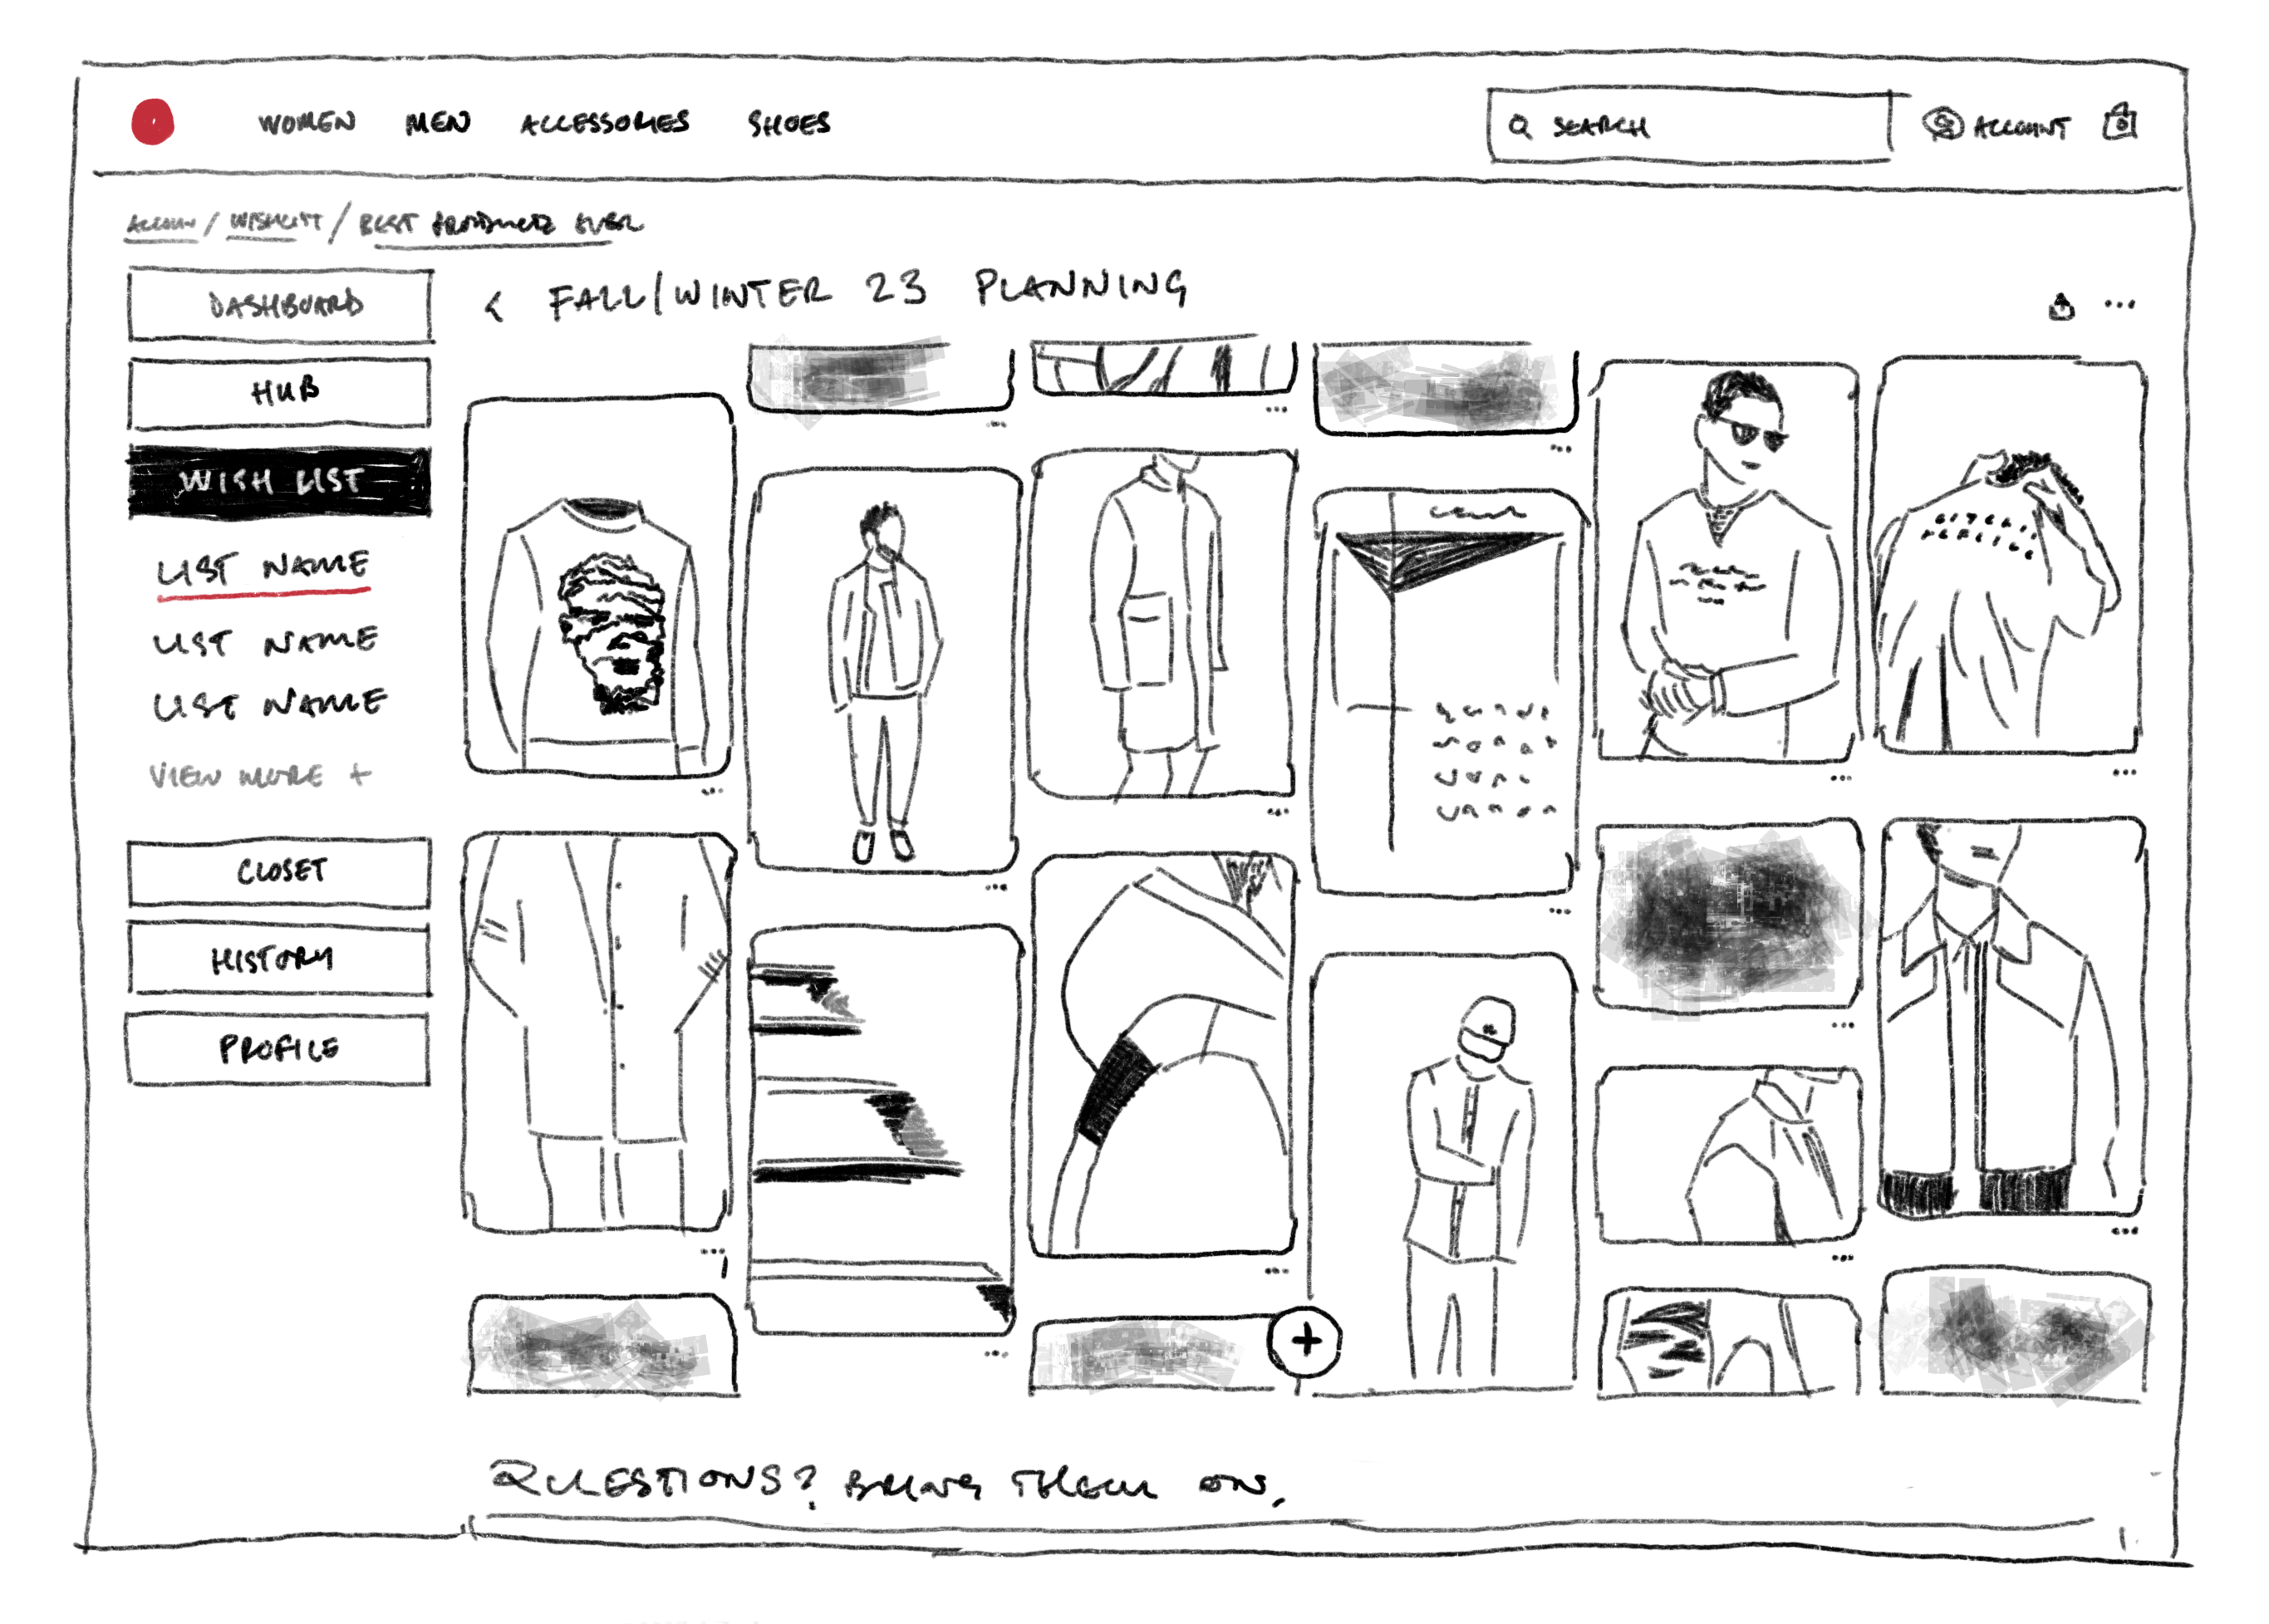 WOMEN MEN ACCESSORIES SHOES
SEARCH
ACCOUNT
ACCOUN / WISHLIST / BEST PRODUCTS EVER
DASHBOARD
HUB
WISH LIST
LIST NAME
LIST NAME
LIST NAME
VIEW MORE +
CLOSET
HISTORY
PROFILE
< FALL/WINTER 23 PLANNING
QUESTIONS? BRING THEM ON.